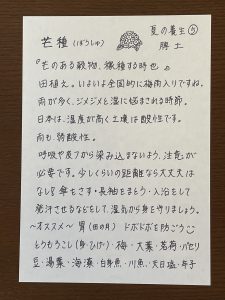 夏の養生⑤
芒種(ぼうしゅ)
脾土
『芒のある穀物、稼種する時也』
田植え。いよいよ全国的に梅雨入りですね。
雨が多く、ジメジメと湿に悩まされる時節。
日本は、湿度が高く土壌は酸性です。
雨も弱酸性。
呼吸や皮フから染み込まないよう、注意が
必要です。少しくらいの距離なら大丈夫は
なし!傘をさす・長袖をまとう・入浴をして
発汗させるなどをして、湿気から身を守りましょう。
〜オススメ〜 胃(田の月) ドボドボを防ごう
とうもろこし(身・ひげ)・梅・大葉・茗荷・パセリ
豆・海藻・白身魚・川魚・天日塩・辛子